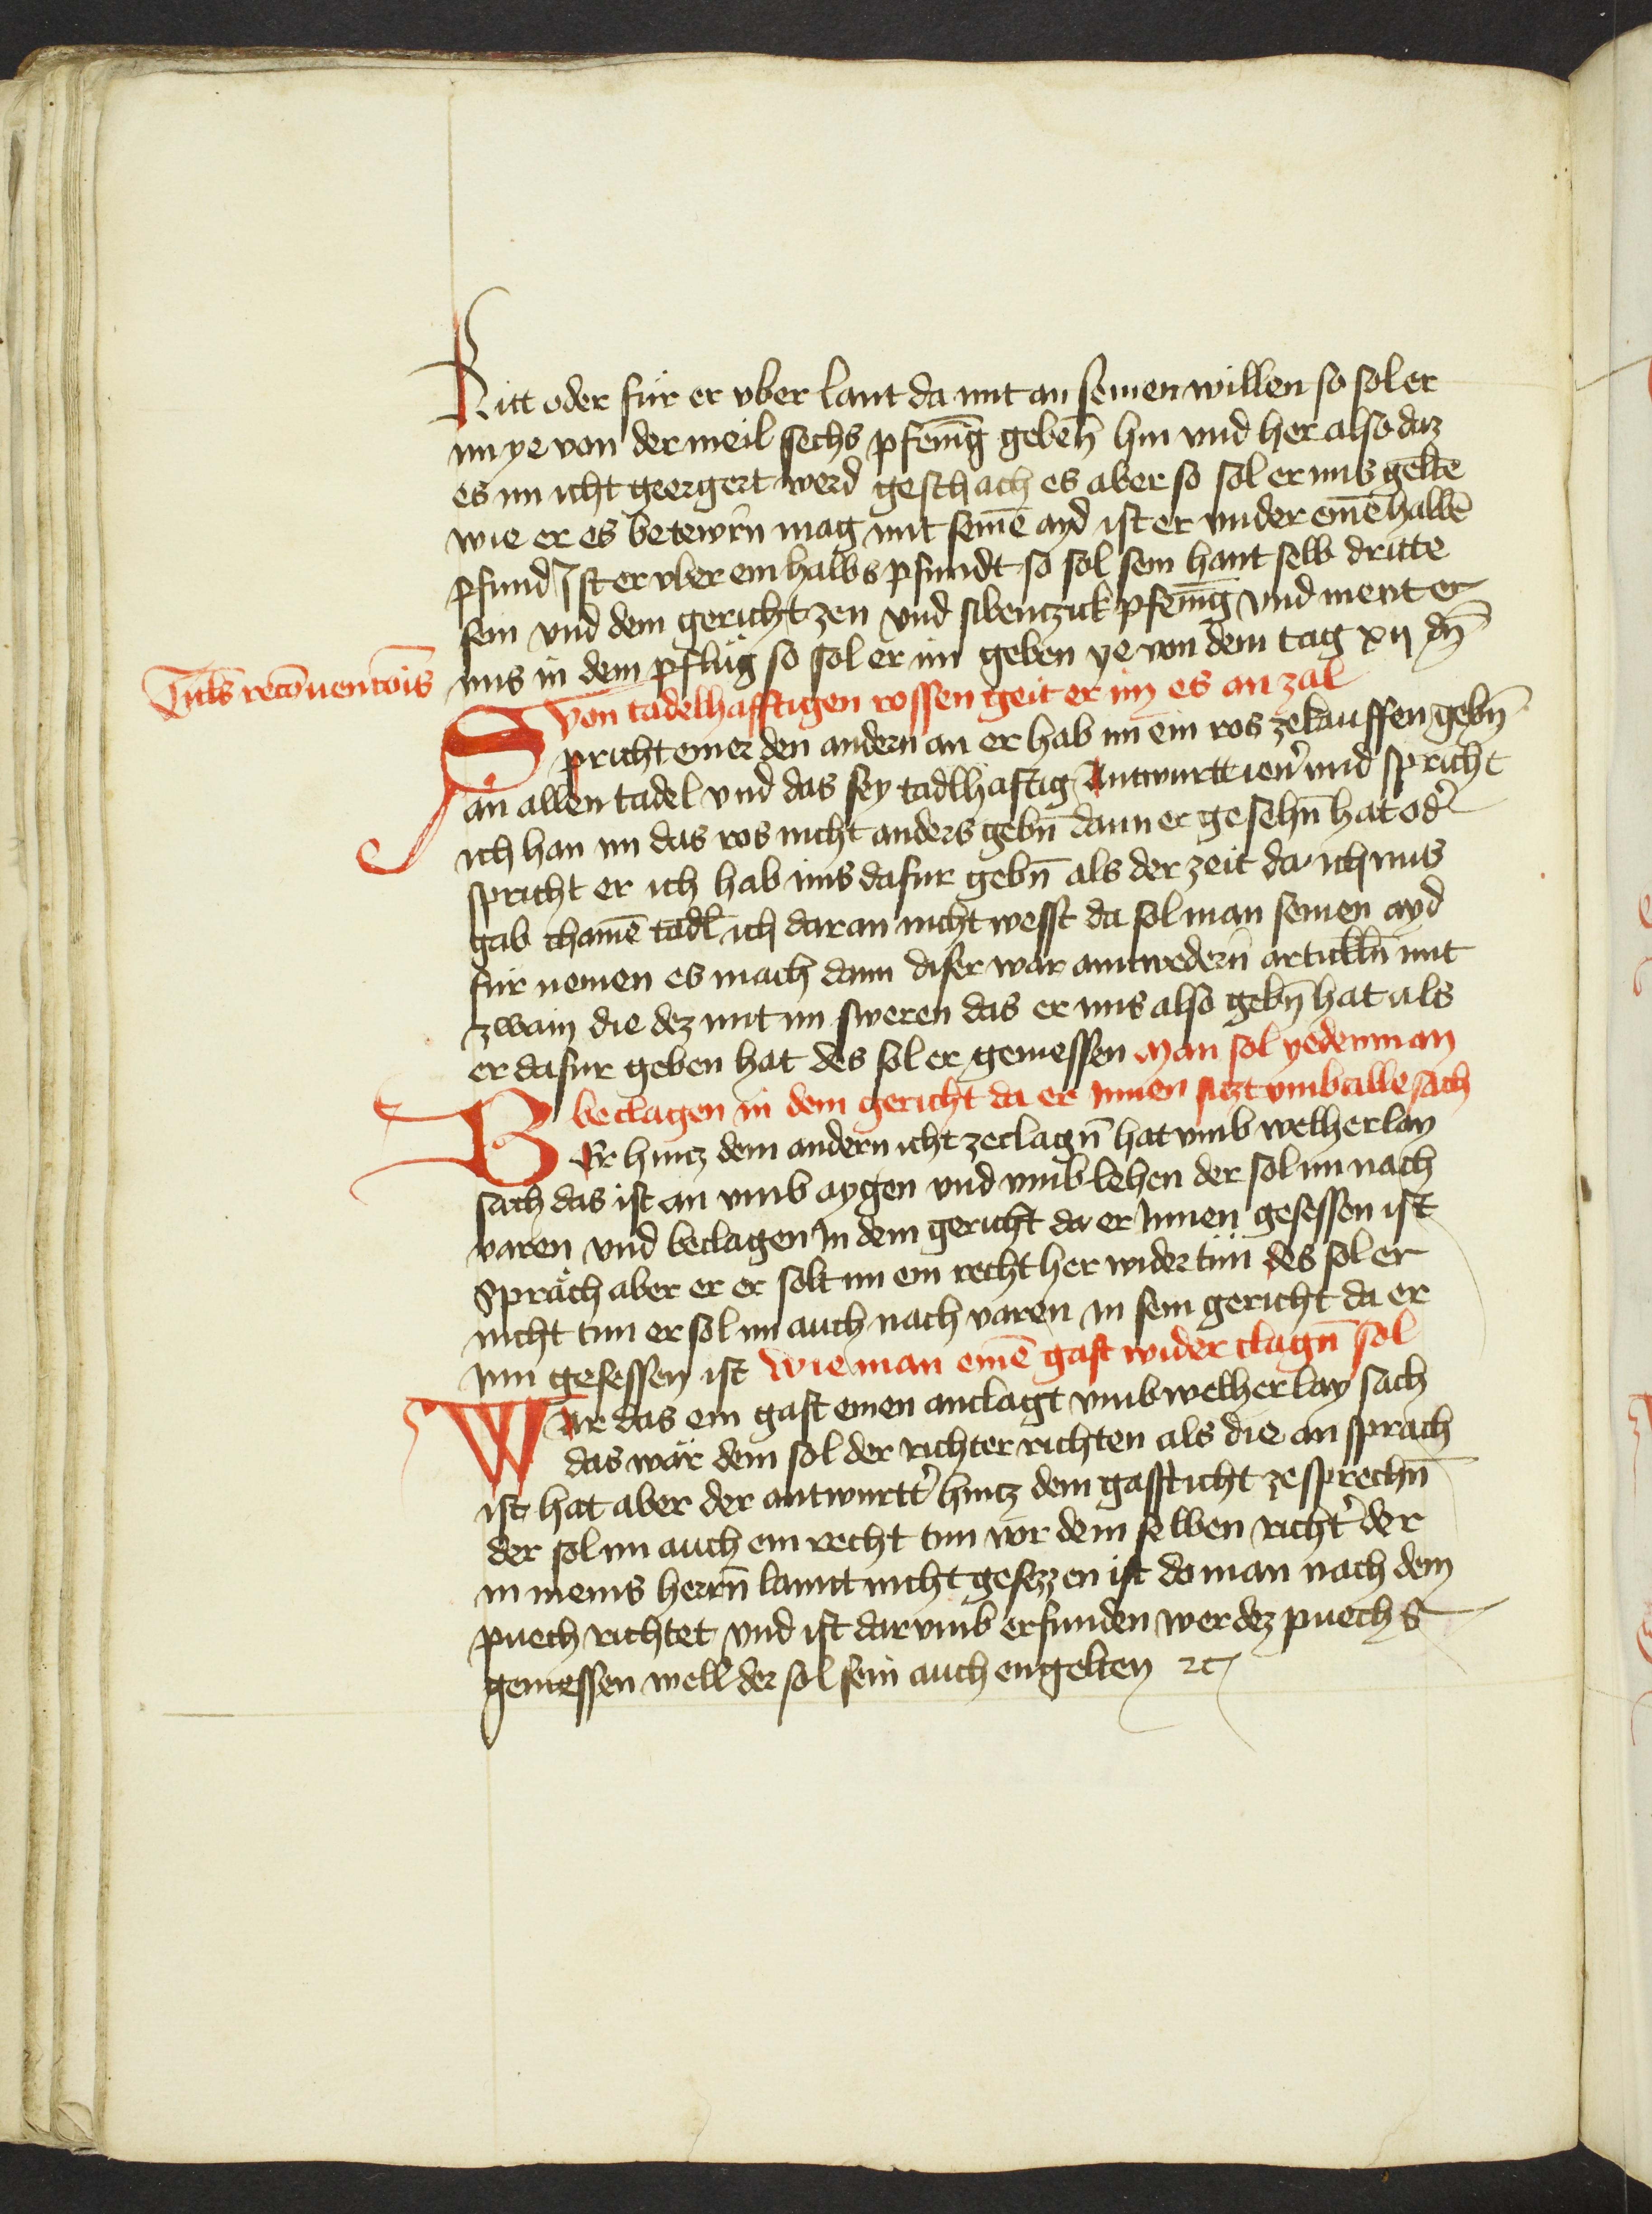 Ritt oder für er vber lant da mit an seinen willen so sol er
im ye von der meil sechs pfenīg gebenn̄ hin vnd her also daz
es im icht geergert werd geschäch es aber so sol er ims geltē
wie er es betewr̄n mag mit seinē ayd ist er vnder einē halbē
pfund Ist er vber ein halbs pfundt so sol sein hant selb dritte
sein vnd dem gericht zen vnd sibenczick pfenīg vnd ment er
ims in dem pflüg so sol er im geben ye von dem tag xij dn̄
Titl's recōuencōis
Von tadelhafftigen rossen geit er im es an zal
Spricht einer den andern an er hab im ein ros ze kauffen gebn̄
än allen tadel vnd das sey tadlhäftig Antwurtt ien' vnd spricht
ich han im das ros nicht anders gebn̄ dann er gesehn̄ hat od'
spricht er ich hab ims dafur gebn̄ als der zeit da ich ims
gab chainē tadl ich daran nicht wesst da sol man seinen ayd
für nemen es mach dann diser war aintwedern̄ artickln̄ mit
zwain die dez mit im sweren das er ims also gebn̄ hat als
er dafur geben hat des sol er geniessen Man sol yedenman
beclagen in dem gericht da er Innen siczt vmb alle sach
Wer hincz dem andern icht ze clagn̄ hat vmb welherlay
sach das ist än vmb aygen vnd vmb lehen der sol im nach
varen vnd beclagen In dem gericht da er Innen gesessen ist
Spräch aber er er solt im ein recht her wider tün des sol er
nicht tun er sol im auch nach varen in sein gericht da er
inn gesessen ist Wie man einē gast wider clagn̄ sol
Wär das ein gast einen anclagt vmb welherlay sach
das wär dem sol der richter richten als die an sprach
ist hat aber der antwurtt' hincz dem gasst icht ze sprechn̄
der sol im auch ein recht tun vor dem selben richt' der
in meins herrn̄ lannt nicht gesezzen ist do man nach dem
puech richtet vnd ist darvmb erfunden wer dez puechs
geniessen well der sol sein auch engelten ꝛc